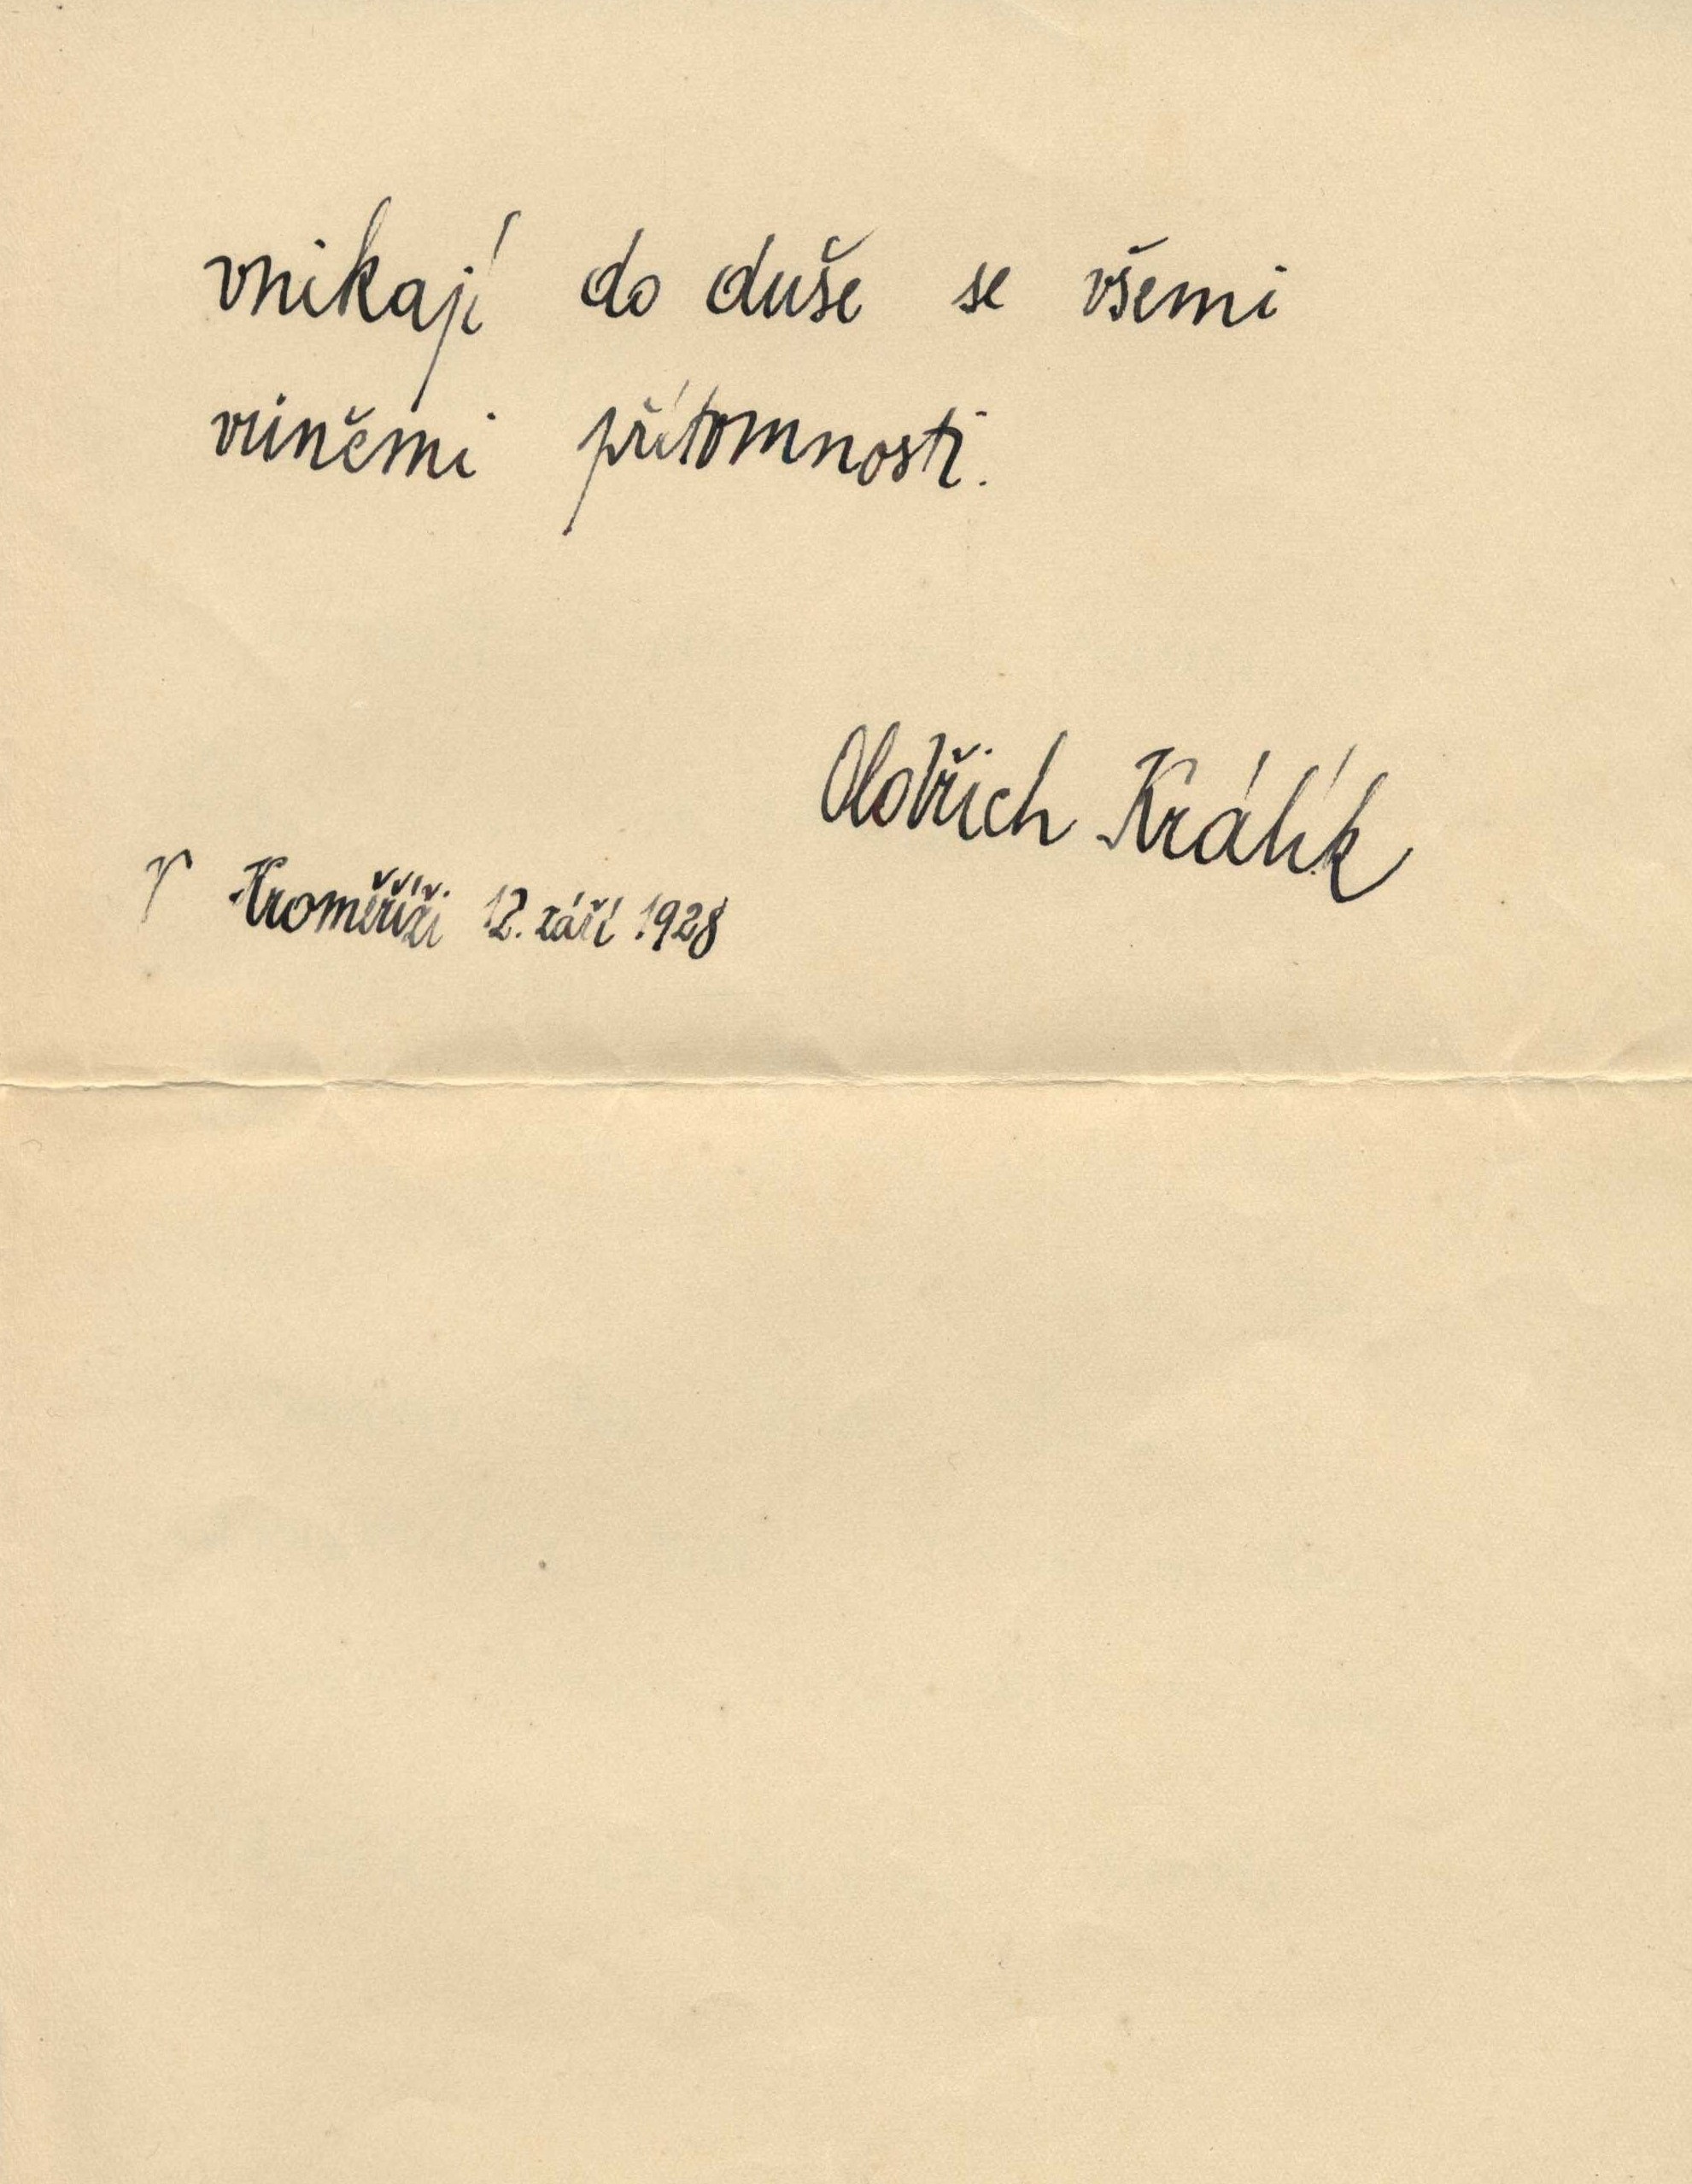 vnikají do duše se všemi
vůněmi přítomnosti.
Oldřich Králík
V Kroměříži 12. září 1928